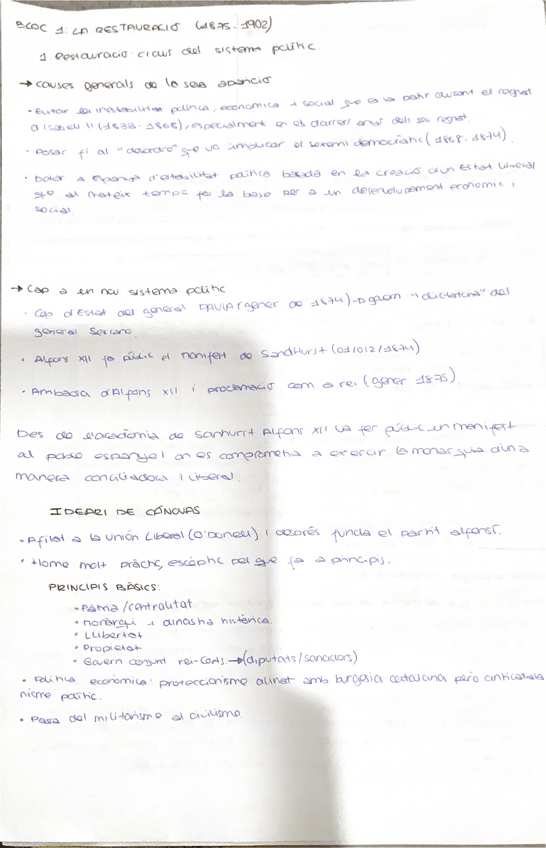 BLOC 1: LA RESTAURACIÓ (1875-1902)
1 Restauració: claus del sistema polític.
→ causes generals de la seva aparició
· Evitar la inestabilitat política, econòmica i social que es va patir durant el regnat
d'Isabel II (1833-1868), especialment en els darrers anys del seu regnat.
· Posar fi al "desordre" que va implicar el sexenni democràtic (1868-1874).
· Dotar a Espanya d'estabilitat política basada en la creació d'un Estat Liberal
que al mateix temps fos la base per a un desenvolupament econòmic i
social.
→ Cap a un nou sistema polític
· Cop d'Estat del general PAVIA (gener de 1874) → govern "dictadura" del
general Serrano.
· Alfons XII fa públic el manifest de Sandhurst (01/012/1874)
· Arribada d'Alfons XII i proclamació com a rei (gener 1875).
Des de l'acadèmia de Sanhurst Alfons XII va fer públic un manifest
al poble espanyol on es comprometia a exercir la monarquia d'una
manera conciliadora i liberal.
IDEARI DE CÁNOVAS
· Afiliat a la Unión Liberal (O'Donell) i després funda el partit alfonsí.
· Home molt pràctic, escèptic pel que fa a principis.
PRINCIPIS BÀSICS:
· Pàtria/centralitat
· Monarquia i dinastia històrica.
· Llibertat
· Propietat
· Govern conjunt rei-Corts. → (diputats/senadors)
· Política econòmica: proteccionisme alineat amb burgesia catalana però anticatala
nisme polític.
· Passa del militarisme al civilisme.